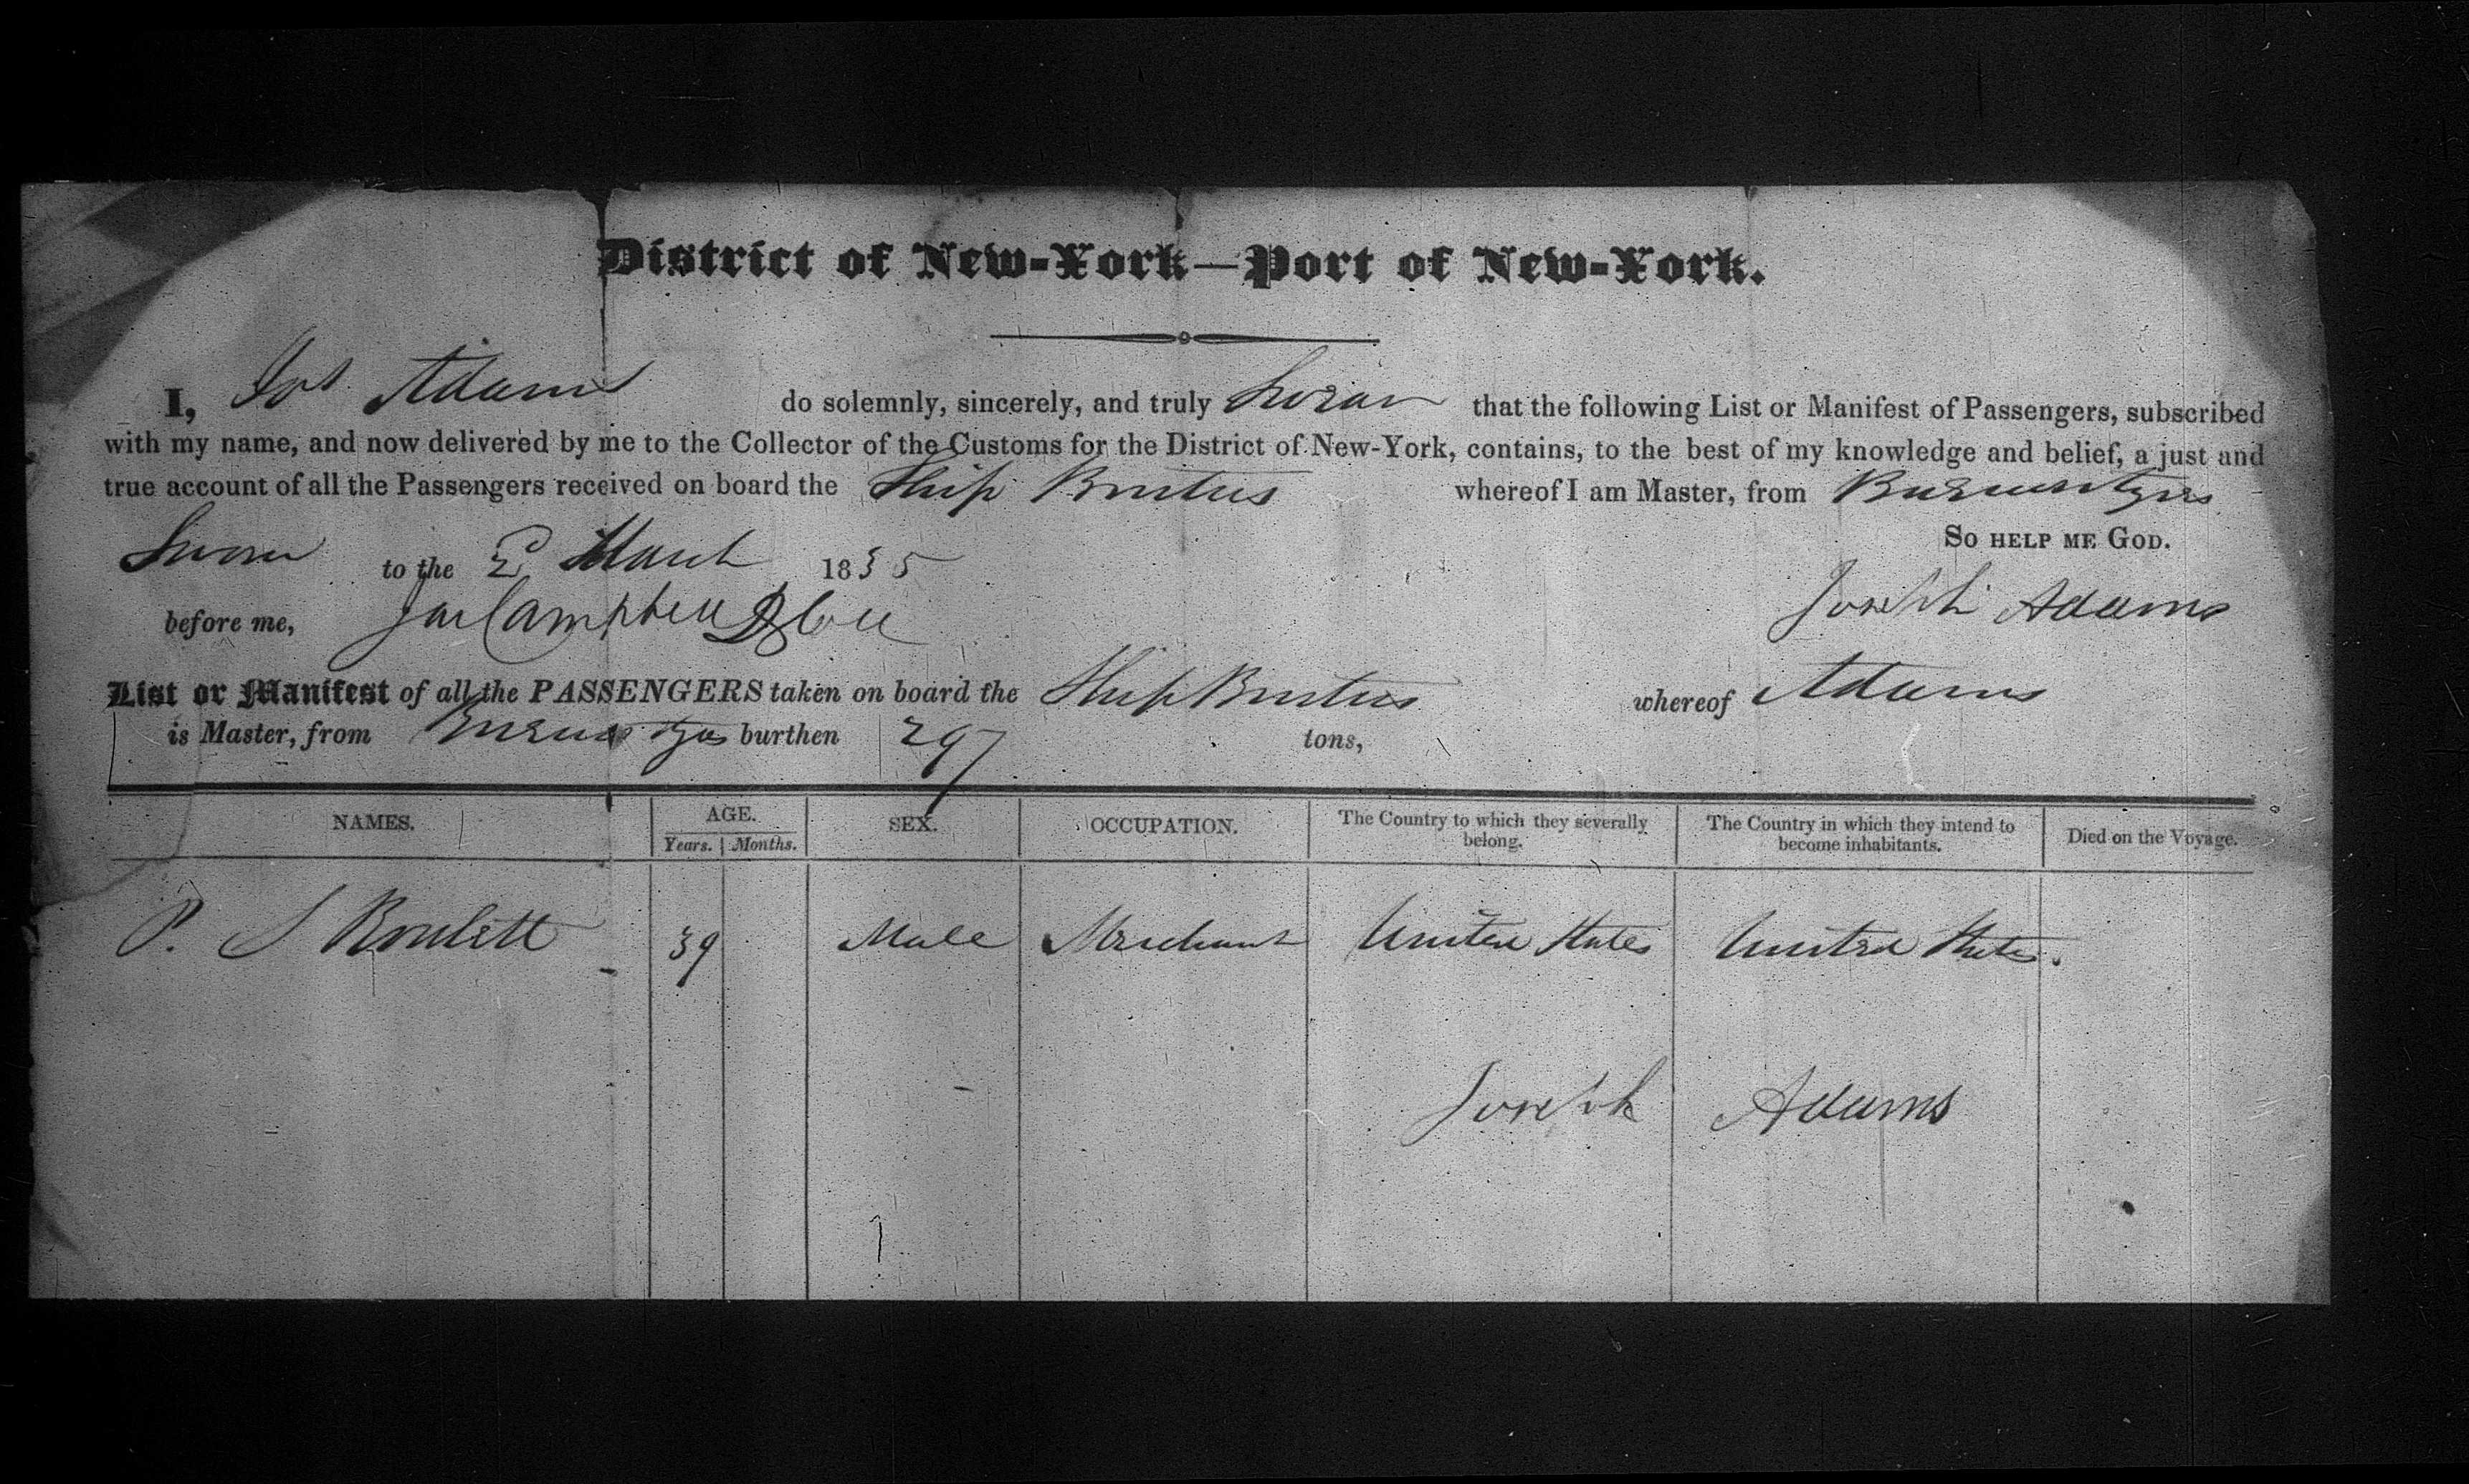 District of New-York—Port of New-York.
I, Jos Adams do solemnly, sincerely, and truly Swear that the following List or Manifest of Passengers, subscribed
with my name, and now delivered by me to the Collector of the Customs for the District of New-York, contains, to the best of my knowledge and belief, a just and
true account of all the Passengers received on board the Ship Brutus whereof I am Master, from Buenos Ayres
So help me God.
Sworn to the 2 March 1835
before me, Jas Campbell D Coll
Joseph Adams
List or Manifest of all the PASSENGERS taken on board the Ship Brutus whereof Adams
is Master, from Buenos Ayres burthen 297 tons,
NAMES. AGE. Years. Months. SEX. OCCUPATION. The Country to which they severally belong. The Country in which they intend to become inhabitants. Died on the Voyage.
P. S 39 Male Merchant United States United States.
Joseph Adams